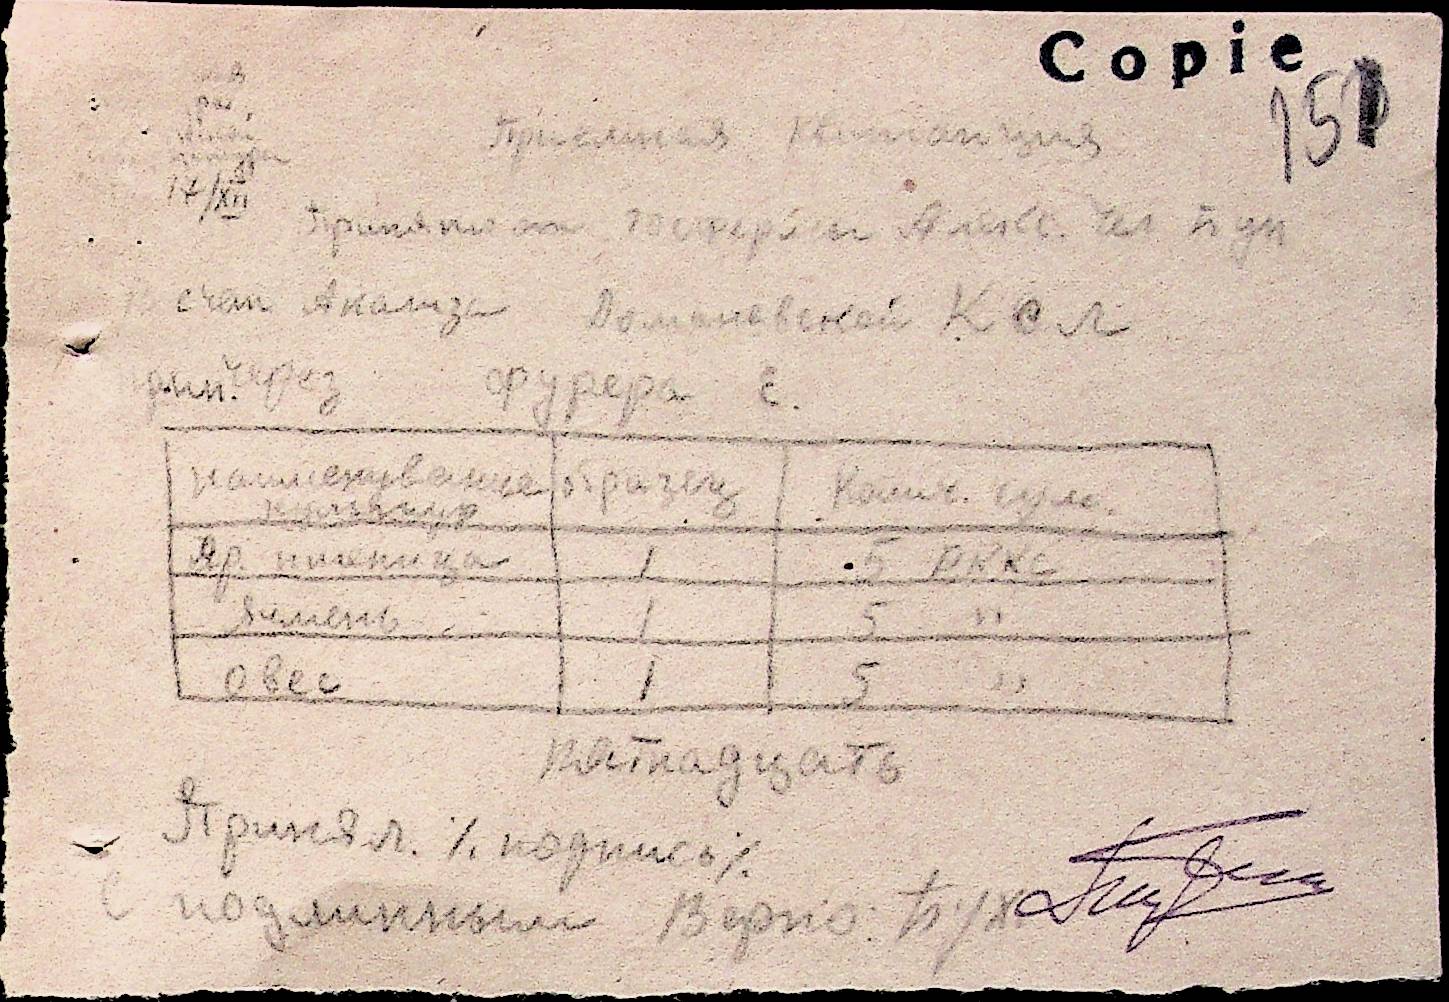 Copie
151
17/XII
Приемная квитанция
Принято от Госфермы Алекс.
счет Анализа Домановской К С Л
через фурера С.
наименування культур образец Колич. сум.
Яр. пшеница 1 5 РККС
Ячмень 1 5 "
Овес 1 5 "
пятнадцать
Принял. /. подпись /.
С подлинным Верно: Бух